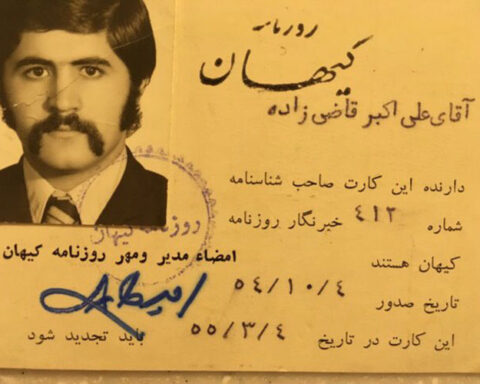 روزنامه
کیهان
آقای علی اکبر قاضی زاده
دارنده این کارت صاحب شناسنامه
شماره ۴۱۲ خبرنگار روزنامه
کیهان هستند
روزنامه کیهان
امضاء مدیر ومهر روزنامه کیهان
تاریخ صدور ۵۴/۱۰/۴
این کارت در تاریخ ۵۵/۳/۴ باید تجدید شود